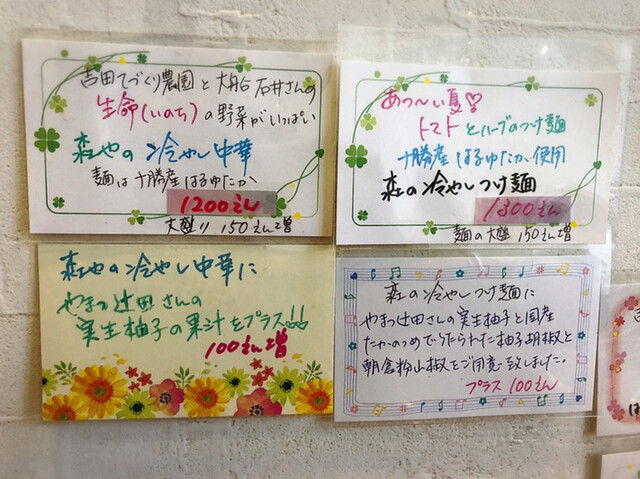 吉田てづくり農園と大船石井さんの
生命(いのち)の野菜がいっぱい
森やの冷やし中華
麺は十勝産はるゆたか
1200えん
大盛り150えん増
あつ〜い夏♡
トマトとハーブのつけ麺
十勝産はるゆたか使用
森の冷やしつけ麺
1300えん
麺の大盛150えん増
森やの冷やし中華に
やまつ辻田さんの
実生柚子の果汁をプラス!!
100えん増
森の冷やしつけ麺に
やまつ辻田さんの実生柚子と国産
たかのつめで作られた柚子胡椒と
朝倉粉山椒をご用意致しました。
プラス100えん